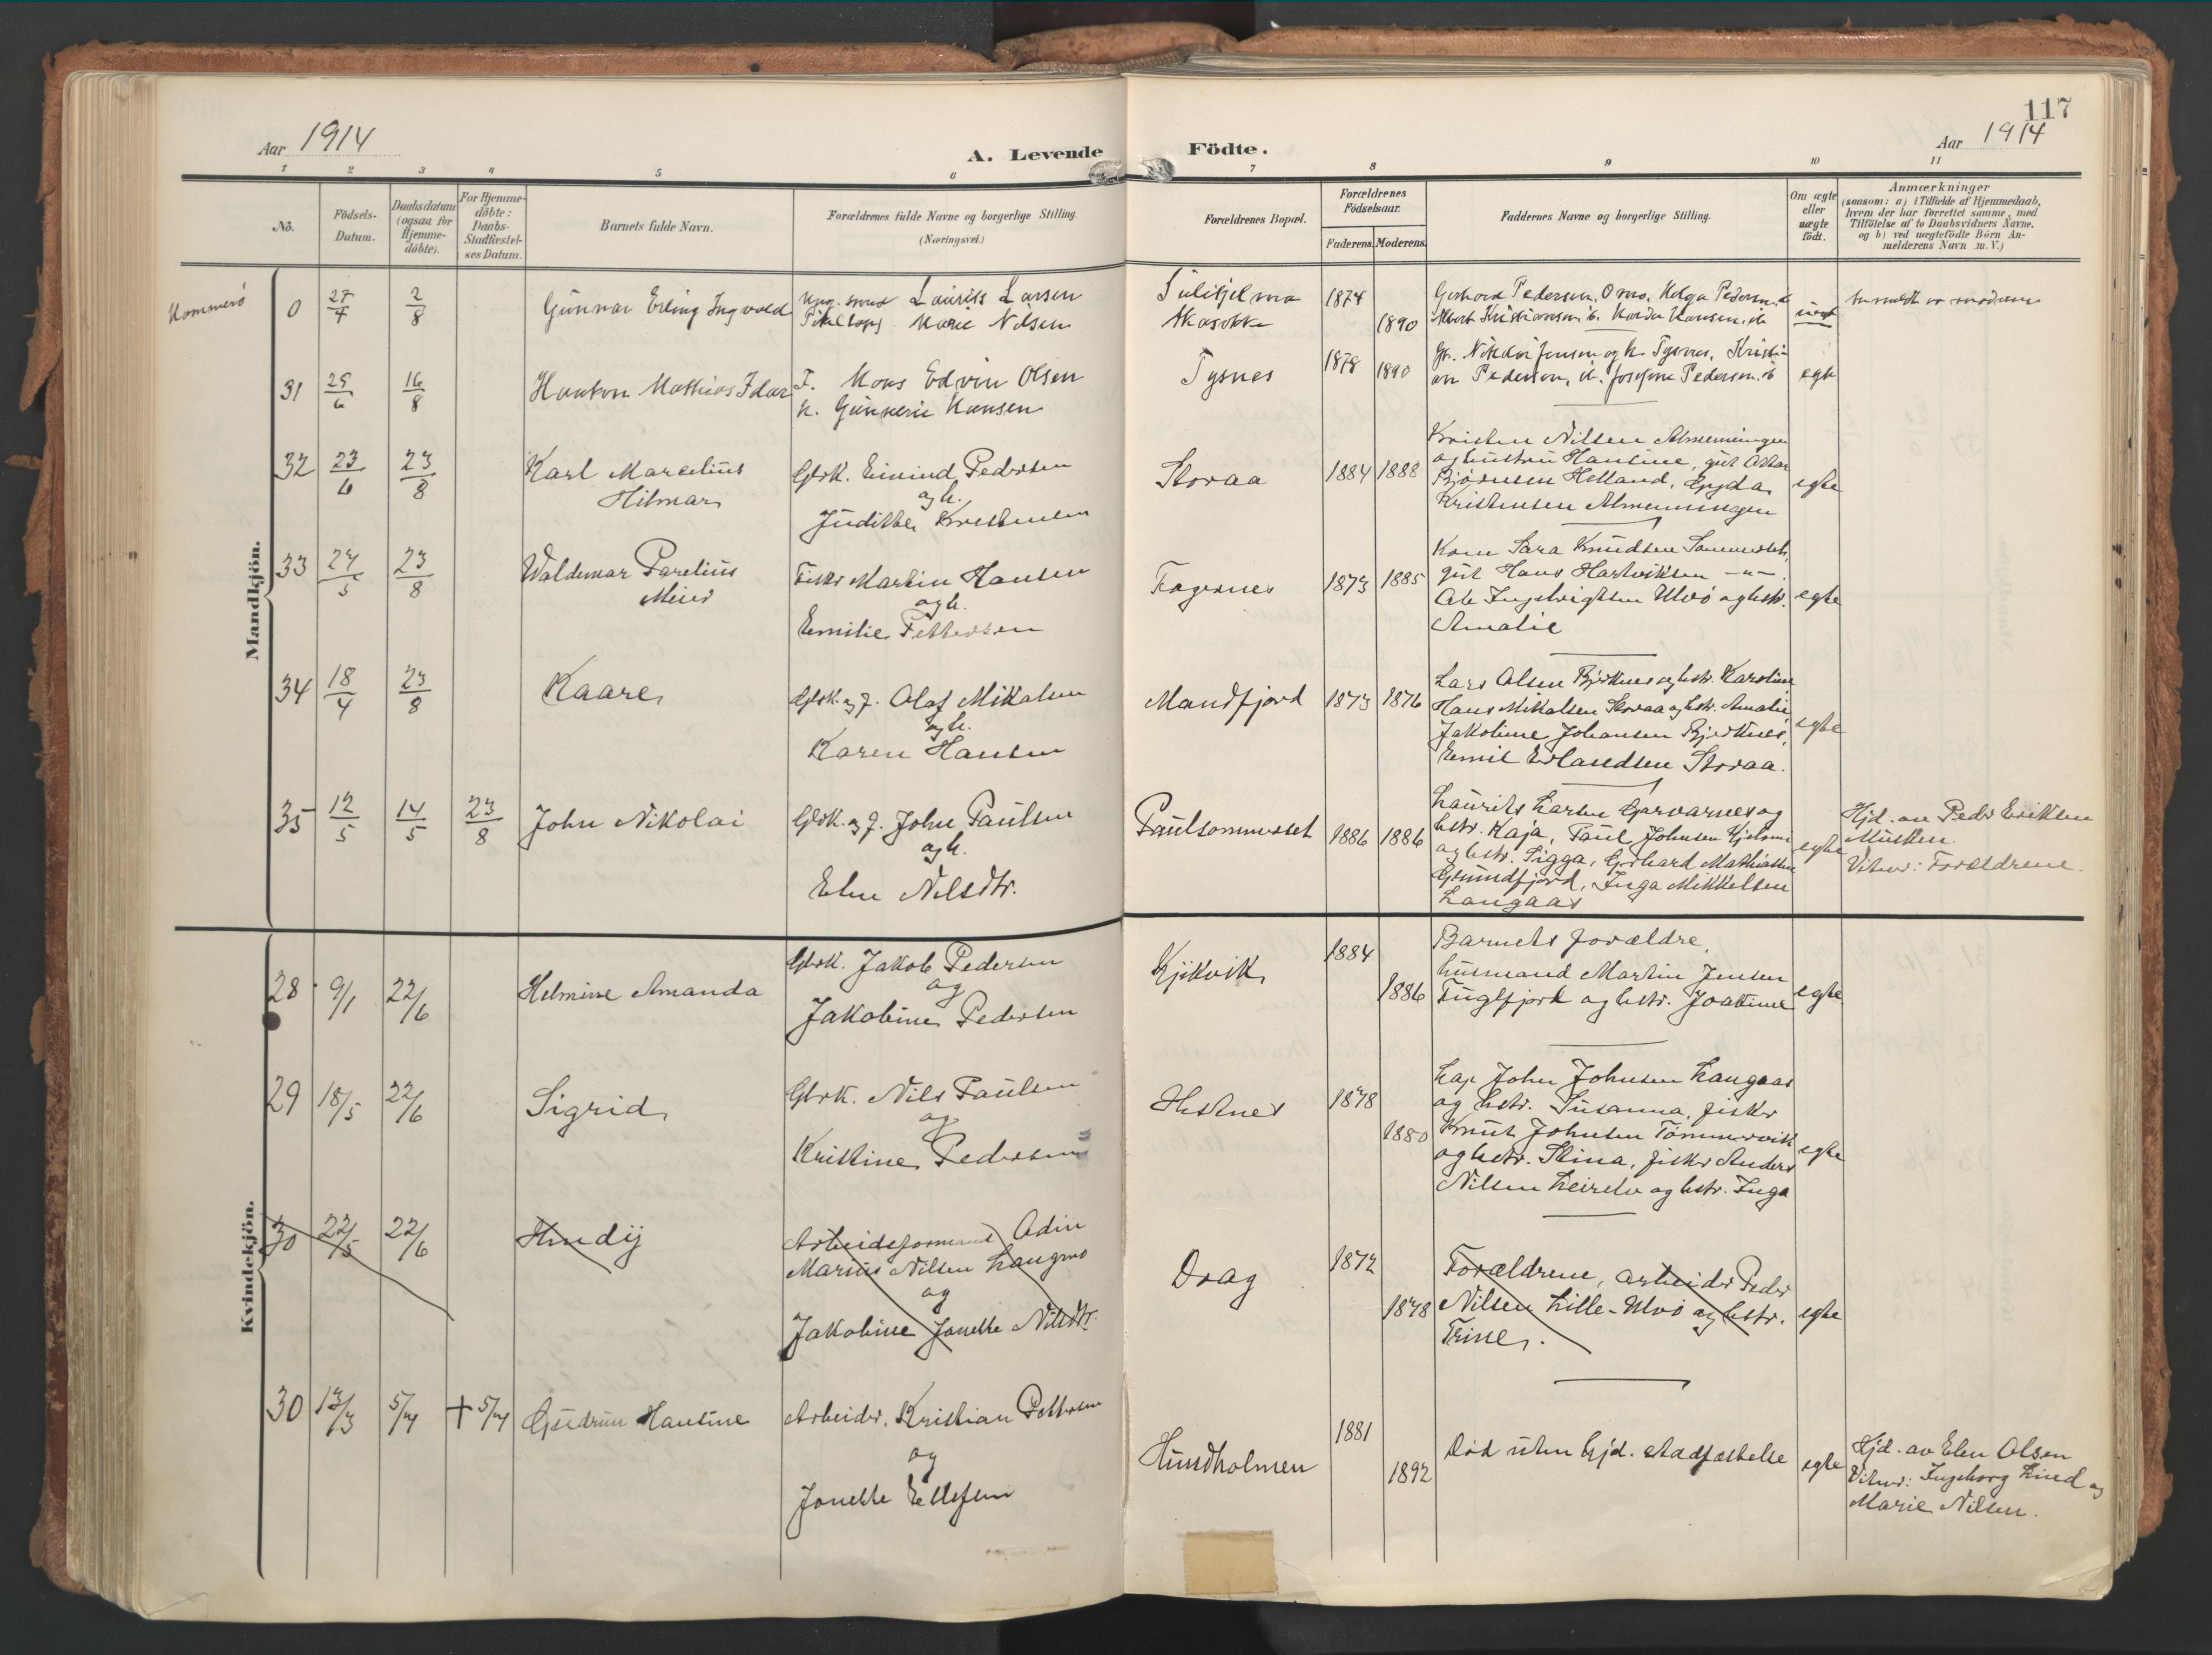 117
Aar 1914
A. Levende
Födte.
Aar 1914
1 2 3 4 5 6 7 8 9 10 11
No.
Födsels-
Datum.
Daabsdatum
(ogsaa for
Hjemme-
döbte).
For Hjemme-
döbte:
Daabs-
Stadfæstel-
ses Datum.
Barnets fulde Navn.
Forældrenes fulde Navne og borgerlige Stilling.
(Næringsvei.)
Forældrenes Bopæl.
Forældrenes
Födselsaar.
Faderens. Moderens.
Faddernes Navne og borgerlige Stilling.
Om ægte
eller
uægte
födt.
Anmærkninger
(saasom: a) i Tilfælde af Hjemmedaab,
hvem der har forrettet samme, med
Tilföielse af to Daabsvidners Navne,
og b) ved uægtefödte Börn An-
melderens Navn m. V.)
Mandkjön.
0 27/7 2/8 Gunnar Erling Ingvald
Ung. Laurits Larsen
Marie Nilsen
Sulitjelma
1874
1890
Gerhard Pedersen, Helga Pedersen
Albert Kristiansen Hansen
31 25/6 16/8 Haakon Mathias Idar
F. Mons Edvin Olsen
h. Hansen
Tysnes
1878 1890
Jensen og h. Tysnes, Kristi-
an Pedersen, Josefine Pedersen
egte
32 23/6 23/8 Karl Marcelius
Hilmar
Gbrk. Eivind Pedersen
og h.
Judithe Kristensen
Storaa
1884 1888
Kristen Nilsen Almenningen
og hustru Hansine, gut
Bjørnsen Helland, Gyda
Kristensen Almenningen
egte
33 24/5 23/8 Waldemar Parelius
Meier
Fisker Martin Hansen
og h.
Emilie Pettersen
Fagernes
1873 1885
Kone Sara Knudsen Sommerset,
gut Hans Hartviksen -"-.
Ole Ingebrigtsen Ulvø og hstr.
Amalie
egte
34 18/4 23/8 Kaare
Gbrk. og f. Olaf Mikalsen
og h.
Karen Hansen
Mandfjord
1873 1876
Lars Olsen Bjerknes og hstr. Karoline,
Hans Mikalsen Storaa og hstr. Amalie,
Jakobine Johansen Bjerknes,
Emil Erlandsen Storaa.
egte
35 12/5 14/5 23/8 John Nikolai
Gbrk. og f. John Paulsen
og h.
Elen Nilsdtr.
Paulsommerset
1886 1886
Laurits Larsen Gjervarnes og
hstr. Kaja, Paul Johnsen
og hstr. Sigga, Gerhard Mathiassen
Grundfjord, Inga Mikkelsen
Langaas
egte
Hjd. av Peder Eriksen
Musken.
Vitner: Forældrene.
Kvindekjön.
28 9/1 22/6 Helmine Amanda
Gbrk. Jakob Pedersen
og
Jakobine Pedersen
Kjikvik
1884
1886
Barnets forældre,
husmand Martin Jensen
Fuglfjord og hstr. Joakime
egte
29 18/5 22/6 Sigrid
Gbrk. Nils Paulsen
og
Kristine Pedersen
Hestnes
1878
1880
Lap John Johnsen Langaas
og hstr. Susanna, fisker
Knut Johnsen Tømmervik
og hstr. Stina, fisker Anders
Nilsen og hstr. Inga
egte
30 22/5 22/6
Arbeidsformand Odin
Marius Nilsen Langmo
og
Jakobine Janette Nilsdtr.
Drag
1872
1878
Forældrene, arbeider Peder
Nilsen Lille-Ulvø og hstr.
Trine.
egte
30 13/3 5/4 + 5/4 Gudrun Hansine
Arbeider. Kristian Pettersen
og
Janette Ellefsen
Hundholmen
1881
1892
Død uten hjd. stadfæstelse
egte
Hjd. av Elen Olsen
Vitner: Ingeborg Lind og
Marie Nilsen.